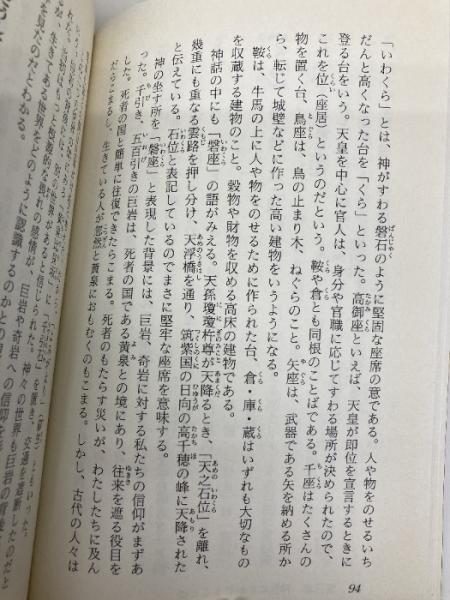 「いわくら」とは、神がすわる磐石のように堅固な座席の意である。人や物をのせるいち
だんと高くなった台を「くら」といった。高御座といえば、天皇が即位を宣言するときに
登る台をいう。天皇を中心に官人は、身分や官職に応じてすわる場所が決められたので、
これを位（座居）というのだという。鞍や倉とも同根のことばである。千座はたくさんの
物を置く台、鳥座は、鳥の止まり木、ねぐらのこと。矢座は、武器である矢を納める所か
ら、転じて城壁などに作った高い建物をいうようになる。
鞍は、牛馬の上に人や物をのせるために作られた台、倉・庫・蔵はいずれも大切なもの
を収蔵する建物のこと。穀物や財物を収める高床の建物である。
神話の中にも「磐座」の語がみえる。天孫瓊瓊杵尊が天降るとき、「天之石位」を離れ、
幾重にも重なる雲路を押し分け、天浮橋を通り、筑紫国の日向の高千穂の峰に天降された
と伝えている。石位と表記しているのでまさに堅牢な座席を意味する。
神の坐す所を「磐座」と表現した背景には、巨岩、奇岩に対する私たちの信仰がまずあ
った。千引き、五百引きの巨岩は、死者の国である黄泉との境にあり、往来を遮る役目を
した。死者の国と簡単に往復できたらこまる。死者のもたらす災いが、わたしたちに及ん
だらこまるし、生きている人が忽然と黄泉におもむくのもこまる。しかし、古代の人々は
生きてある世界をどのように認識するのかとの
を見たのだとわかる。
94